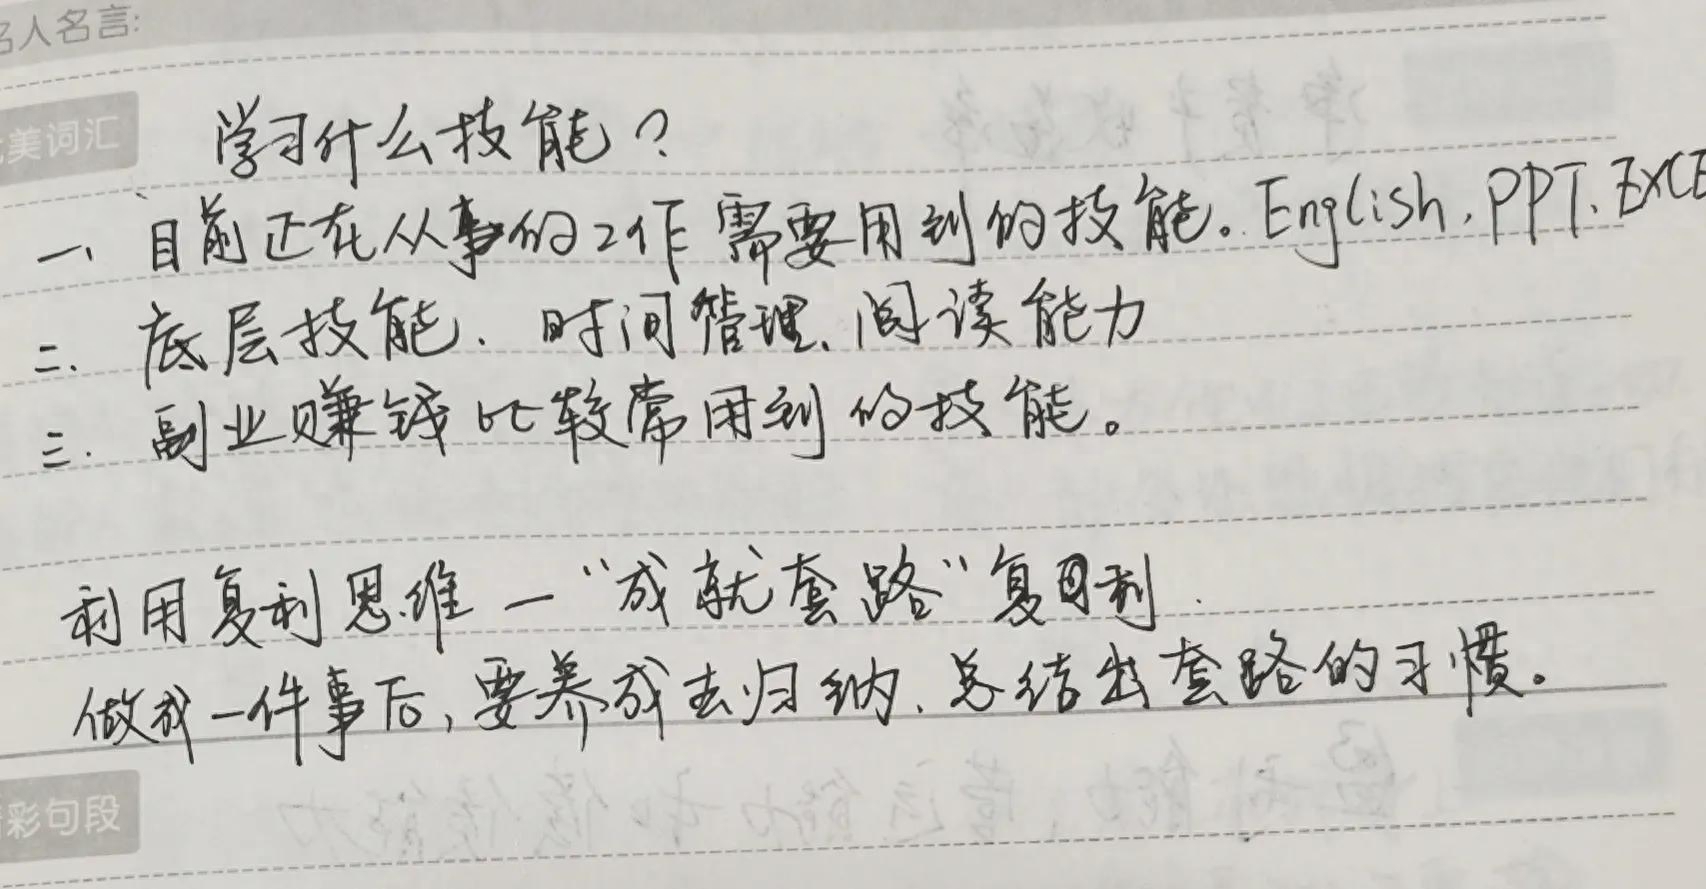 名人名言:
学习什么技能?
美词汇
一、目前正在从事的工作需要用到的技能。English, PPT, EXCE
二、底层技能. 时间管理、阅读能力
三. 副业赚钱比较常用到的技能。
利用复利思维一“成就套路”复利.
做成一件事后,要养成去归纳、总结出套路的习惯。
彩句段